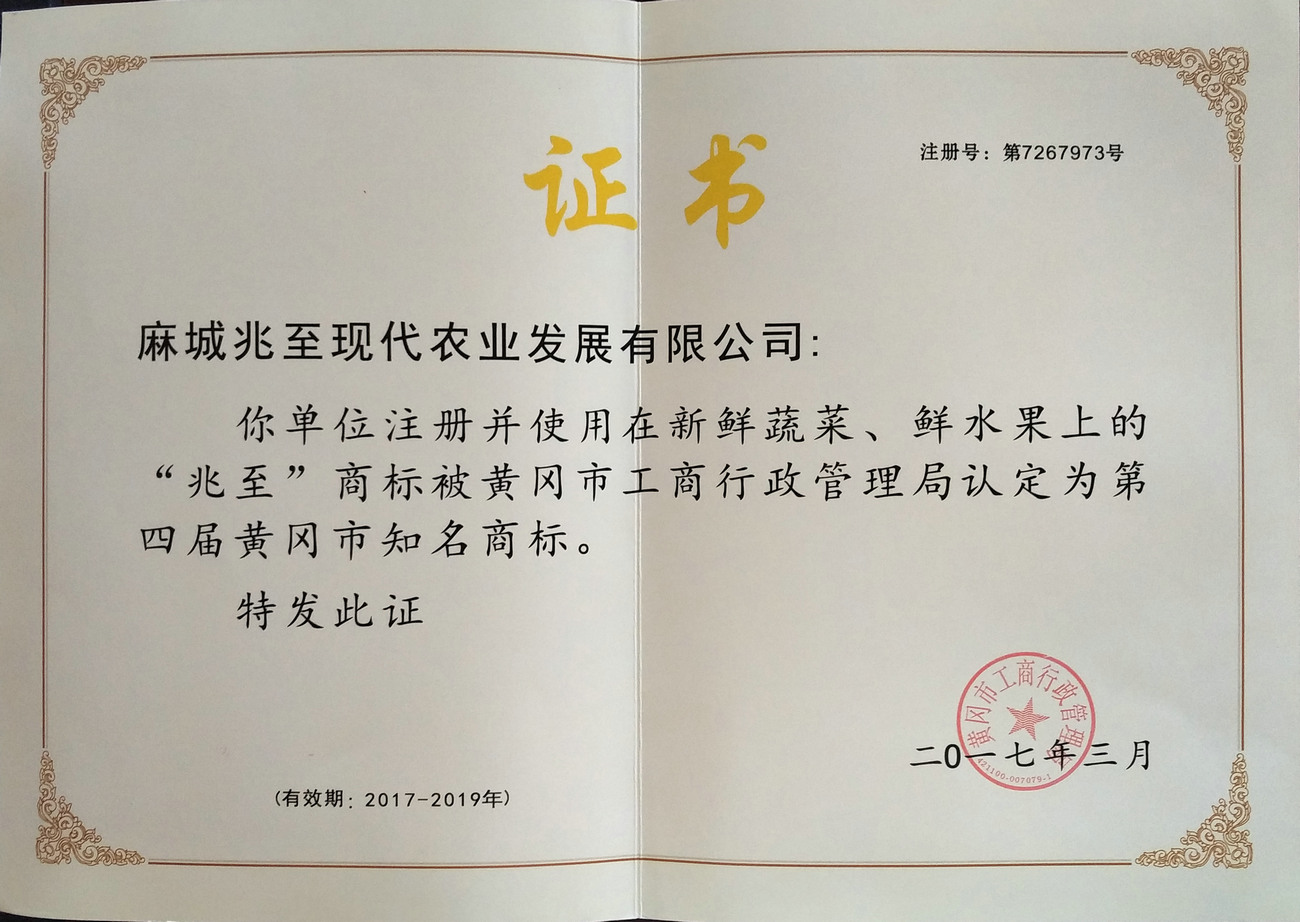 证书
注册号：第7267973号
麻城兆至现代农业发展有限公司:
你单位注册并使用在新鲜蔬菜、鲜水果上的
“兆至”商标被黄冈市工商行政管理局认定为第
四届黄冈市知名商标。
特发此证
黄冈市工商行政管理局
421100-007079-1
二0一七年三月
(有效期: 2017-2019年)